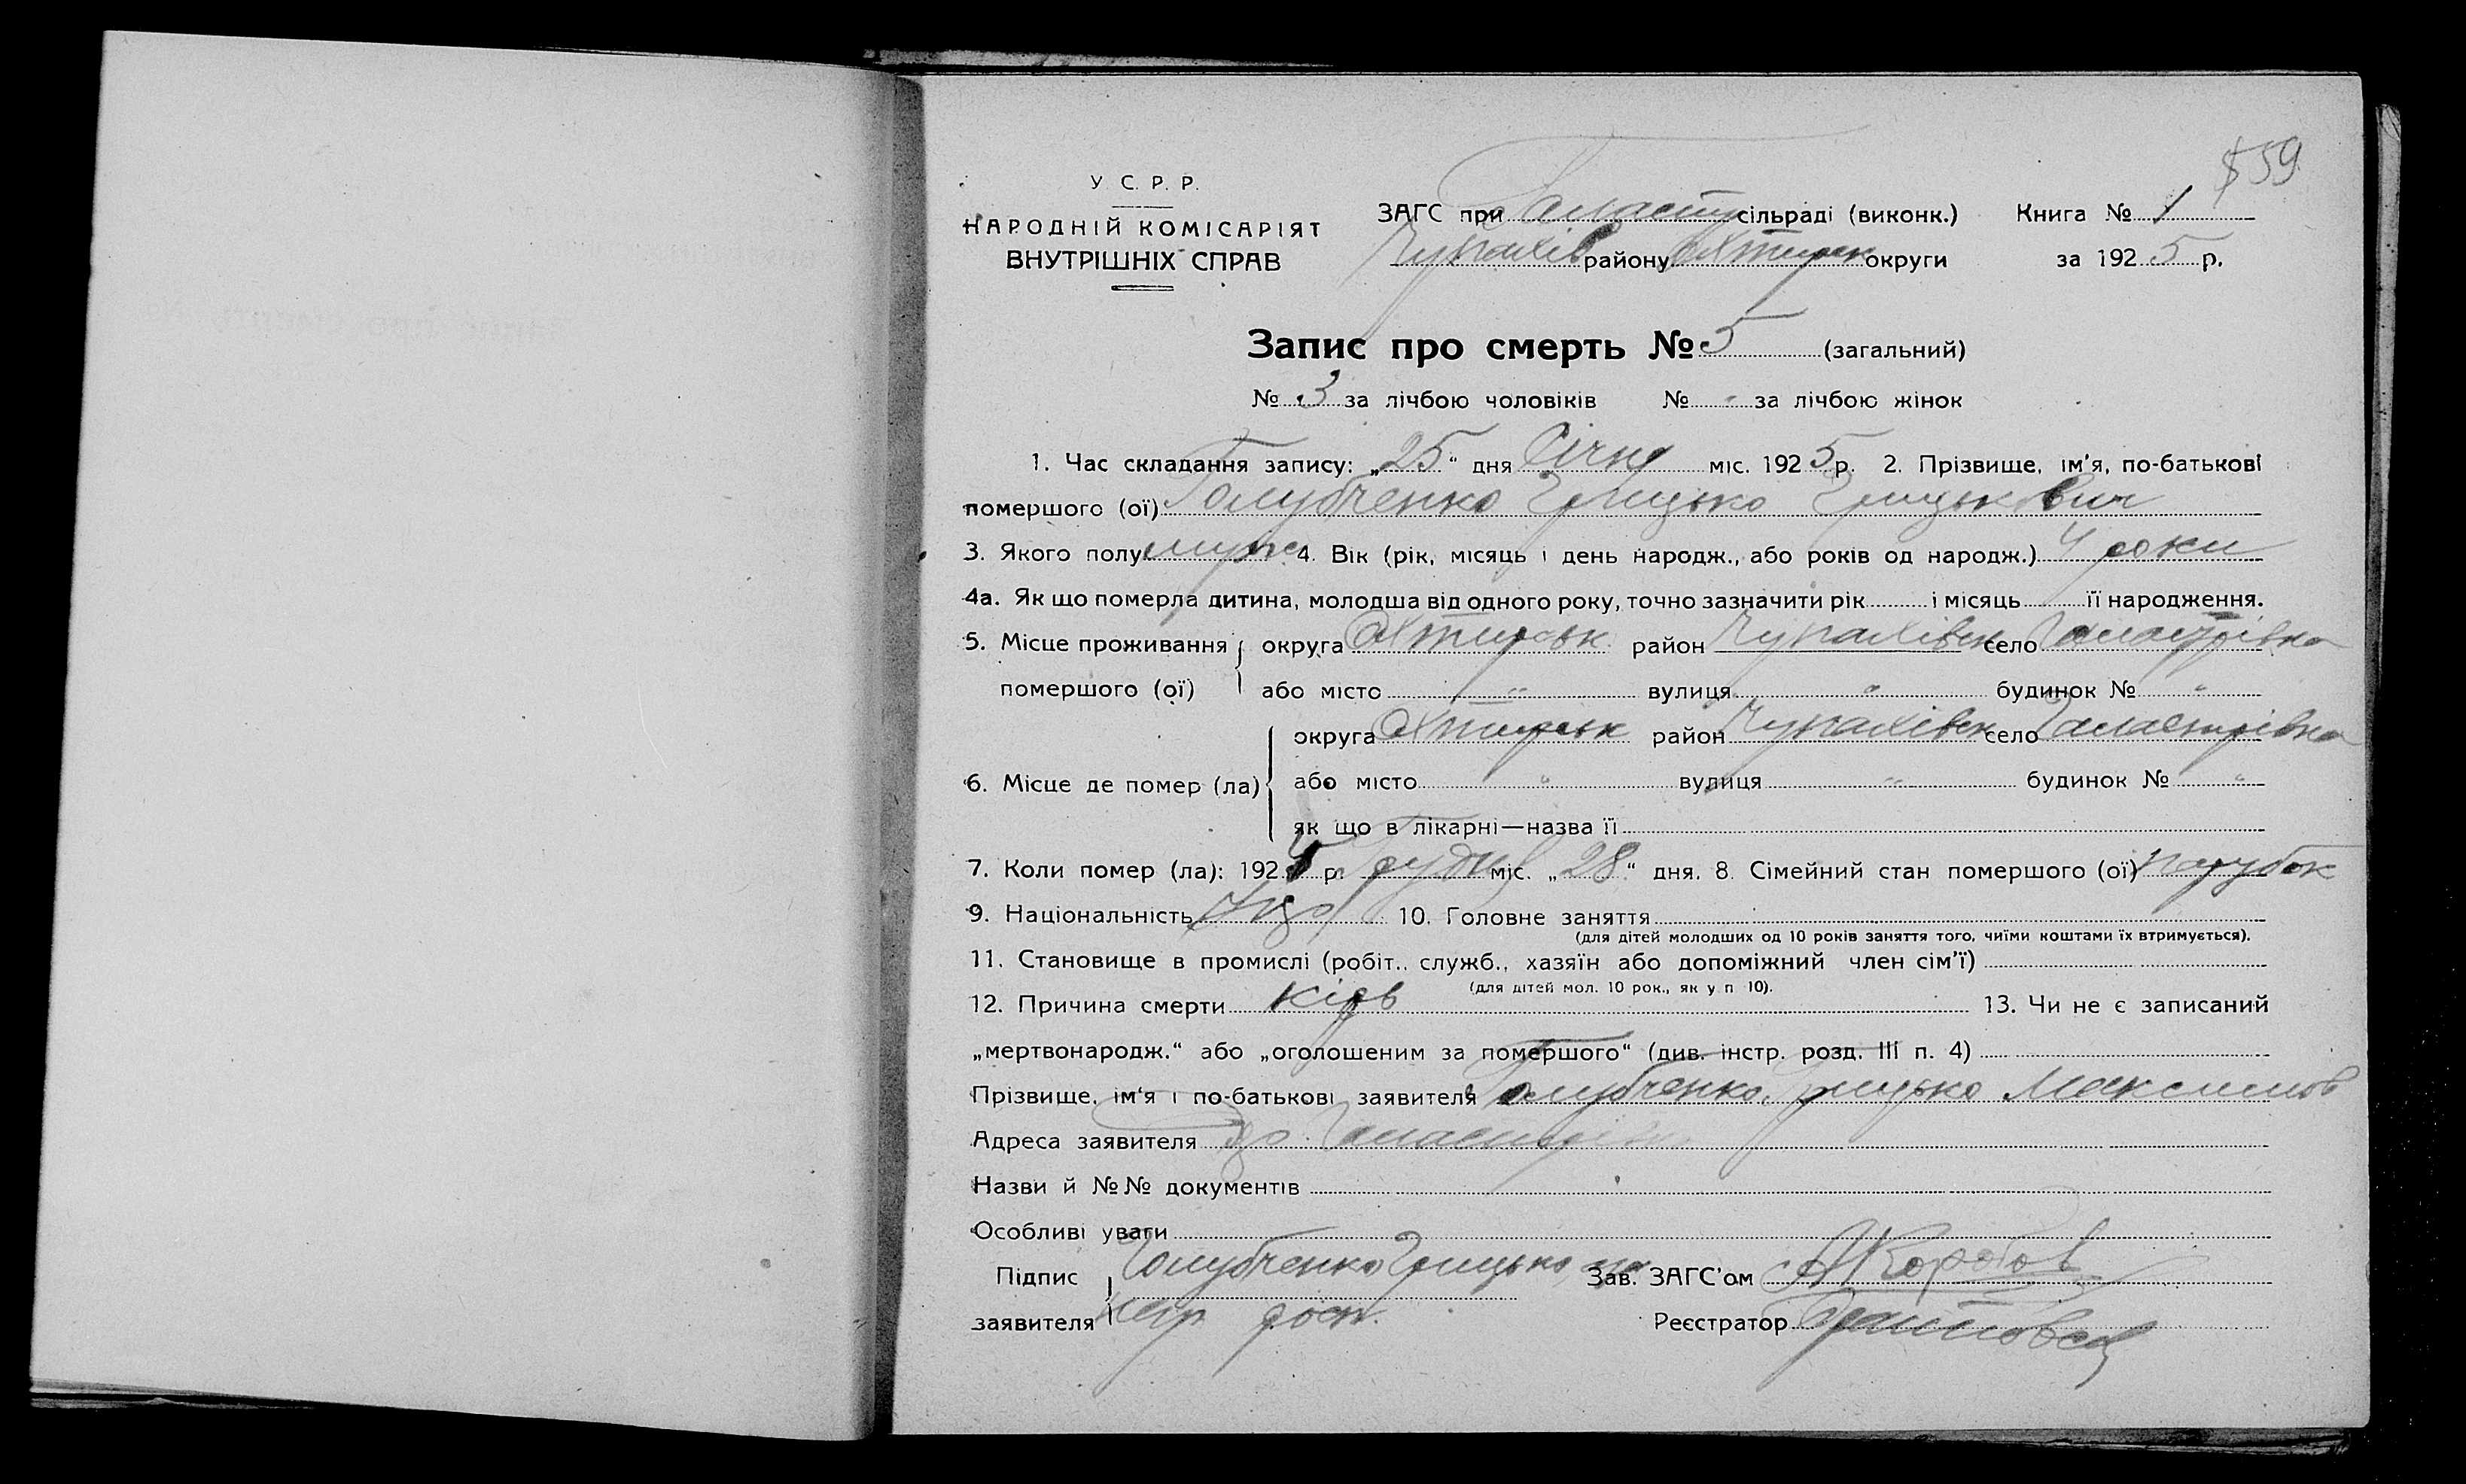 559
У. С. Р. Р.
НАРОДНІЙ КОМІСАРІЯТ
ВНУТРІШНІХ СПРАВ
ЗАГС при сільраді (виконк.) Книга № 1
Чупахів району Охтирск округи за 1925 р.
Запис про смерть № 5 (загальний)
№ 3 за лічбою чоловіків № - за лічбою жінок
1. Час складання запису: „25“ дня Січня міс. 1925 р. 2. Прізвище, ім'я, по-батькові
помершого (ої) Голубченко Грицько Грицькович
3. Якого полу муж 4. Вік (рік, місяць і день народж., або років од народж.) 4 роки
4а. Як що померла дитина, молодша від одного року, точно зазначити рік і місяць її народження.
5. Місце проживання округа Охтирськ район Чупахівск село
помершого (ої) або місто " вулиця " будинок № "
округа Охтирськ район Чупахівск село
6. Місце де помер (ла) або місто " вулиця " будинок № "
як що в лікарні—назва її
7. Коли помер (ла): 192 р. Грудня міс. „28“ дня. 8. Сімейний стан помершого (ої) парубок
9. Національність 10. Головне заняття
(для дітей молодших од 10 років заняття того, чиїми коштами їх втримується).
11. Становище в промислі (робіт., служб., хазяїн або допоміжний член сім'ї)
(для дітей мол. 10 рок., як у п 10).
12. Причина смерти кір 13. Чи не є записаний
„мертвонародж.“ або „оголошеним за помершого“ (див. інстр. розд. III п. 4)
Прізвище, ім'я і по-батькові заявителя Голубченко Грицько Максимов
Адреса заявителя
Назви й №№ документів
Особливі уваги
Підпис Голубченко Грицько Зав. ЗАГС'ом АКоробов
заявителя Реєстратор